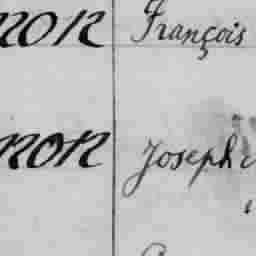 non François
non Joseph